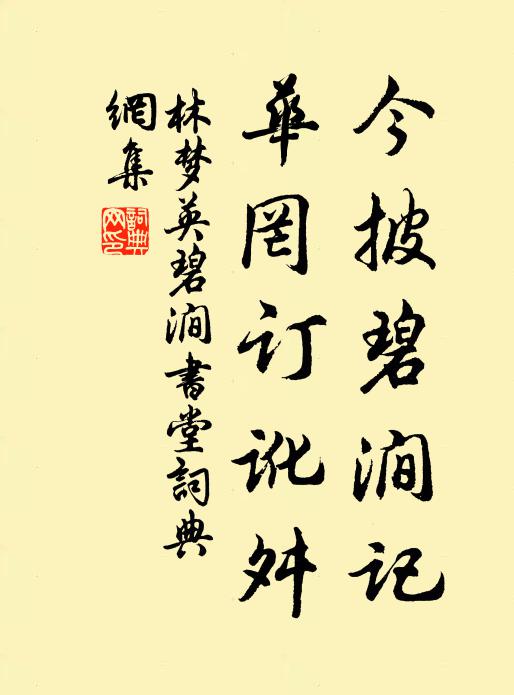 今披碧涧记
華罔订讹舛
林梦英碧涧書堂詞典
網集
詞典
网印